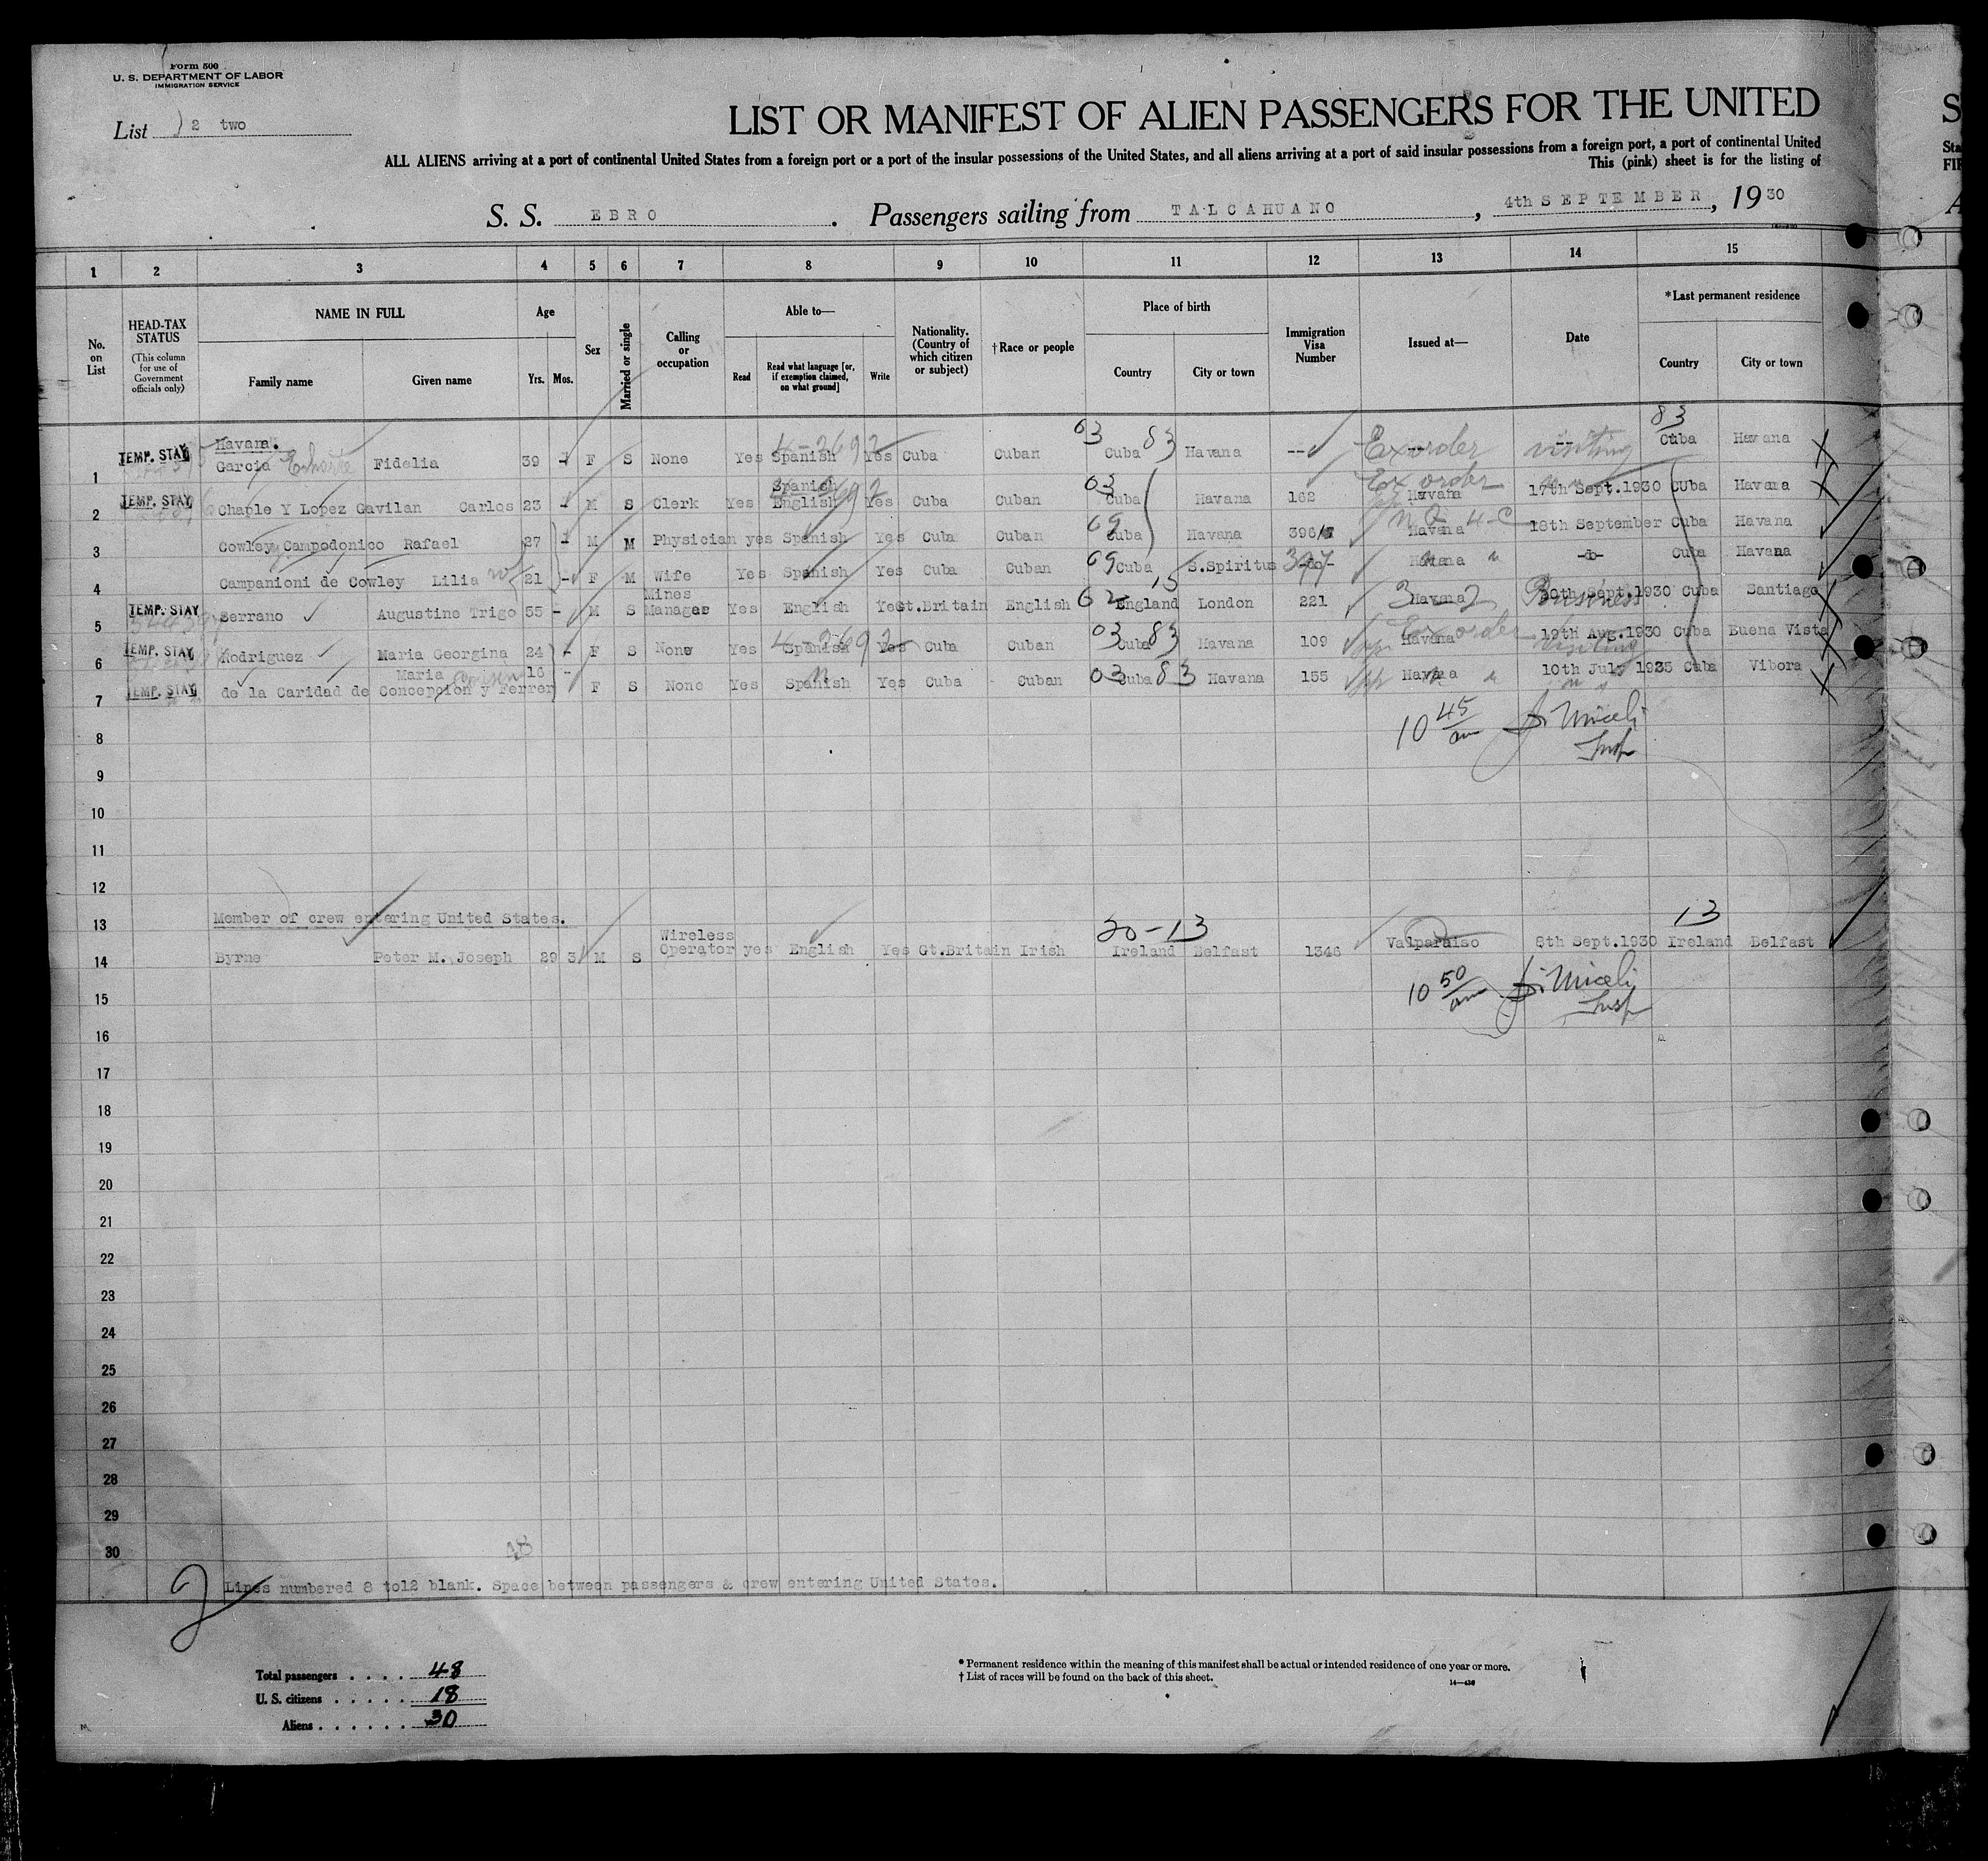 Form 500
U. S. DEPARTMENT OF LABOR
IMMIGRATION SERVICE
List 2 two
LIST OR MANIFEST OF ALIEN PASSENGERS FOR THE UNITED
ALL ALIENS arriving at a port of continental United States from a foreign port or a port of the insular possessions of the United States, and all aliens arriving at a port of said insular possessions from a foreign port, a port of continental United
This (pink) sheet is for the listing of
S. S. EBRO. Passengers sailing from TALCAHUANO, 4th SEPTEMBER, 1930
1 2 3 4 5 6 7 8 9 10 11 12 13 14 15
No. on List
HEAD-TAX STATUS
(This column for use of Government officials only)
NAME IN FULL
Family name Given name
Age
Yrs. Mos.
Sex
Married or single
Calling or occupation
Able to—
Read
Read what language [or, if exemption claimed, on what ground]
Write
Nationality. (Country of which citizen or subject)
† Race or people
Place of birth
Country City or town
Immigration Visa Number
Issued at—
Date
*Last permanent residence
Country City or town
Havana.
1 TEMP. STAY Garcia Fidelia 39 - F S None Yes Spanish Yes Cuba Cuban 03 Cuba 83 Havana -- Ex order visiting 83 Cuba Havana
2 TEMP. STAY Chaple Y Lopez Gavilan Carlos 23 - M S Clerk Yes Spanish English Yes Cuba Cuban 03 Cuba Havana 162 Ex order Havana 17th Sept.1930 Cuba Havana
3 Cowley Campodonico Rafael 27 - M M Physician yes Spanish Yes Cuba Cuban 69 Cuba Havana 396 N Q 4-C Havana 18th September Cuba Havana
4 Campanioni de Cowley Lilia 21 - F M Wife Yes Spanish Yes Cuba Cuban 69 Cuba S.Spiritus 397 -do- Havana -do- Cuba Havana
5 TEMP. STAY Serrano Augustine Trigo 55 - M S Mines Manager Yes English Yes Gt.Britain English 62 England 15 London 221 3-2 Havana Business 20th Sept.1930 Cuba Santiago
6 TEMP. STAY Rodriguez Maria Georgina 24 - F S None Yes Spanish Yes Cuba Cuban 03 Cuba 83 Havana 109 Ex order Havana 19th Aug.1930 visiting Cuba Buena Vista
7 TEMP. STAY de la Caridad de Concepcion y Ferrer Maria 16 - F S None Yes Spanish Yes Cuba Cuban 03 Cuba 83 Havana 155 Havana 10th July 1925 Cuba Vibora
10 45 am Miceli Insp
8
9
10
11
12
13 Member of crew entering United States.
14 Byrne Peter M. Joseph 29 3 M S Wireless Operator yes English Yes Gt.Britain Irish 20-13 Ireland Belfast 1346 Valparaiso 8th Sept.1930 13 Ireland Belfast
10 50 am Miceli Insp
15
16
17
18
19
20
21
22
23
24
25
26
27
28
29
30
48
2 Lines numbered 8 to12 blank. Space between passengers & crew entering United States.
Total passengers . . . . 48
U. S. citizens . . . . . 18
Aliens . . . . . . 30
* Permanent residence within the meaning of this manifest shall be actual or intended residence of one year or more.
† List of races will be found on the back of this sheet.
14—430